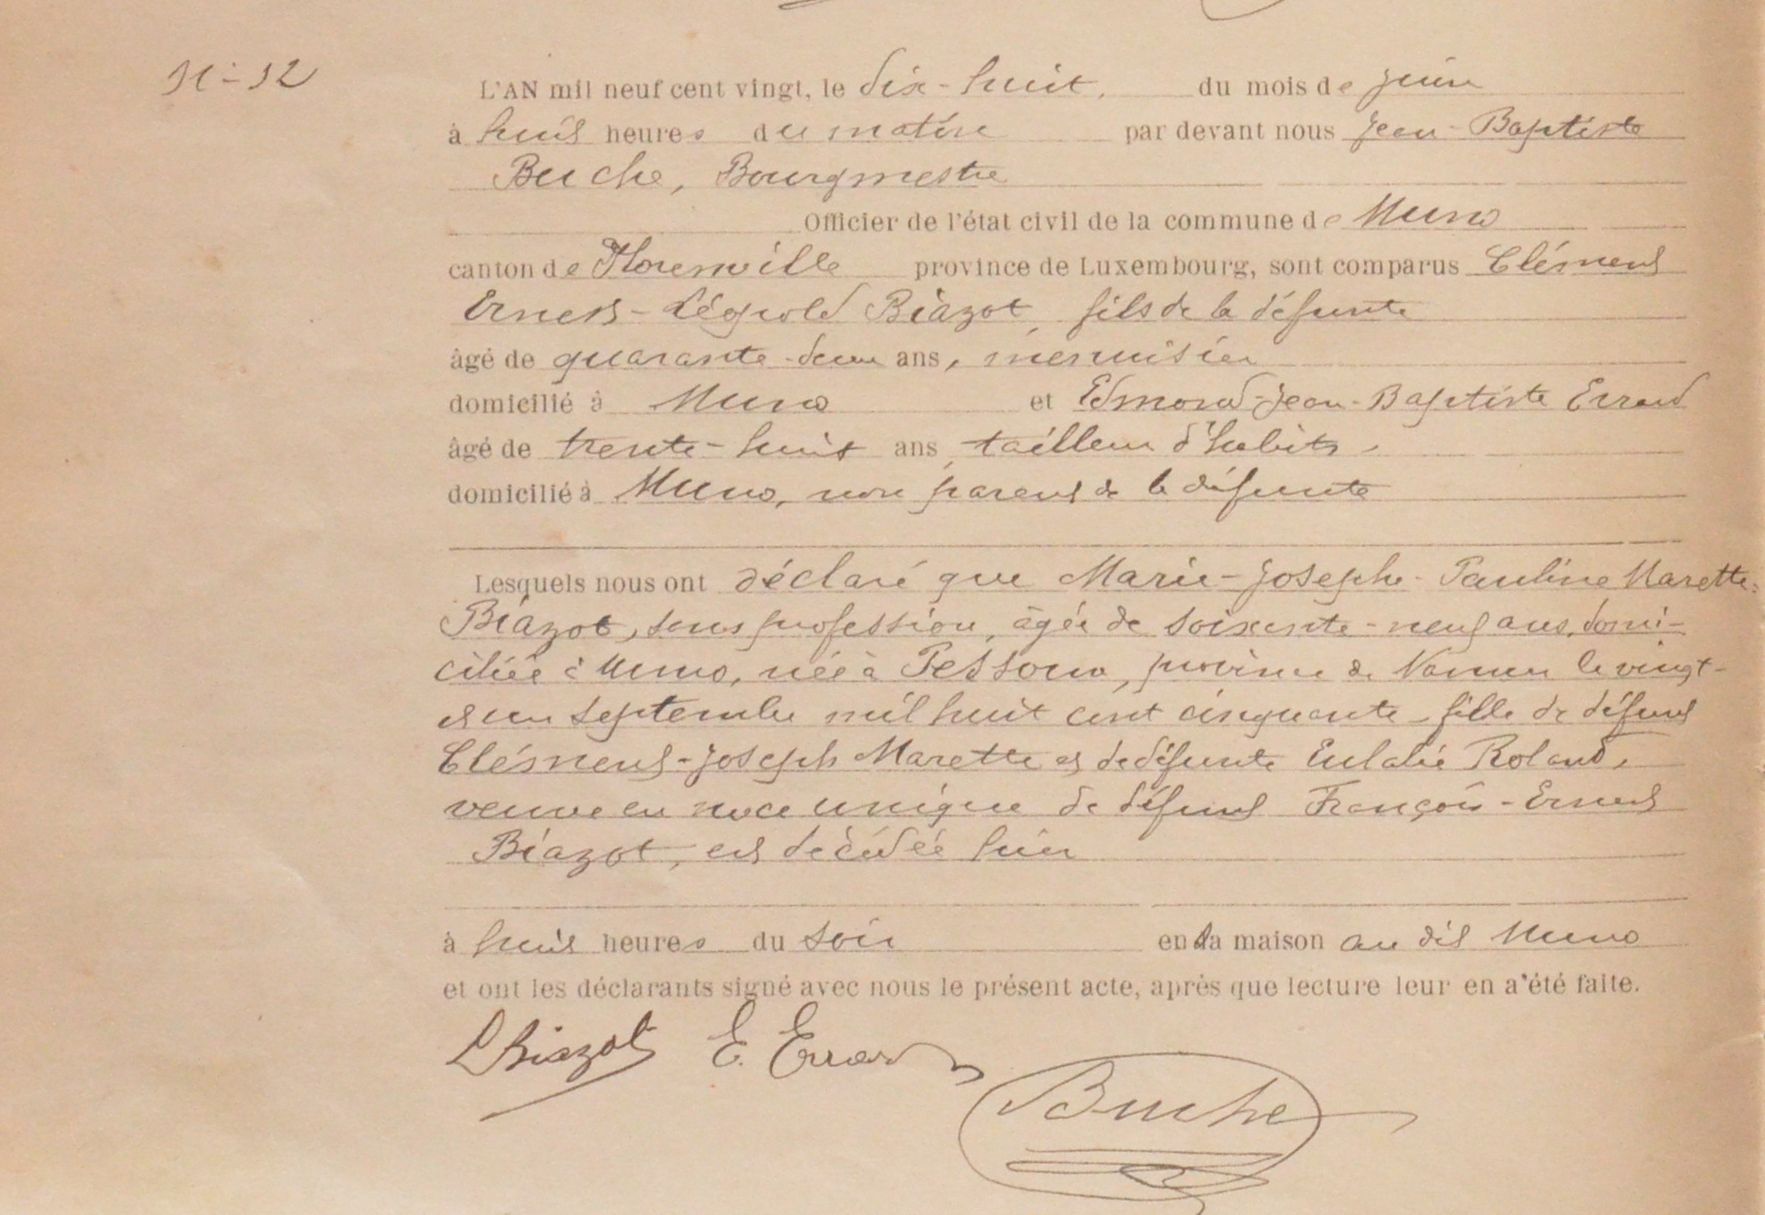 N° 12
L'AN mil neuf cent vingt, le dix-huit, du mois de juin
à huit heures du matin par devant nous Jean-Baptiste
Buche, Bourgmestre
Officier de l'état civil de la commune de Muno
canton de Florenville province de Luxembourg, sont comparus Clément
Ernest-Léopold Biazot, fils de la défunte
âgé de quarante-deux ans, menuisier
domicilié à Muno et Edmond-Jean-Baptiste Errard
âgé de trente-huit ans, tailleur d'habits,
domicilié à Muno, non parent de la défunte
Lesquels nous ont déclaré que Marie-Josephe-Pauline Marette-
Biazot, sans profession, âgée de soixante-neuf ans, domi-
ciliée à Muno, née à province de Namur le vingt-
et un septembre mil huit cent cinquante, fille de défunt
Clément-Joseph Marette et de défunte Eulalie Roland,
veuve en noce unique de défunt François-Ernest
Biazot, est décédée hier
à huit heures du soir en sa maison au dit Muno
et ont les déclarants signé avec nous le présent acte, après que lecture leur en a'été faite.
L Biazot E. Errard
Buche